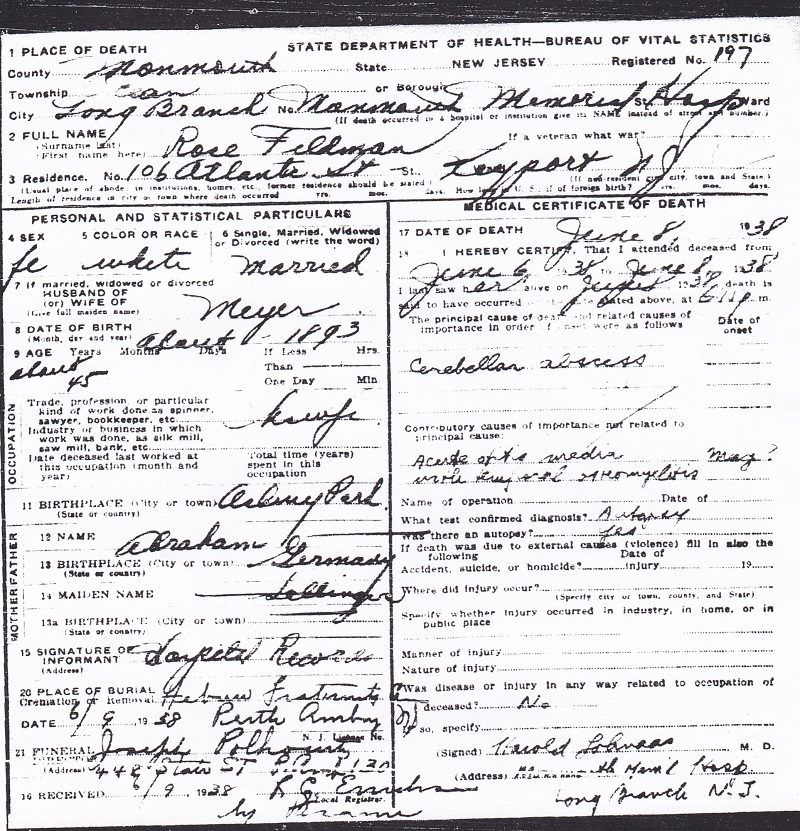 STATE DEPARTMENT OF HEALTH—BUREAU OF VITAL STATISTICS
1 PLACE OF DEATH
County Monmouth State NEW JERSEY Registered No. 197
Township or Borough
City Long Branch No. Monmouth Memorial Hosp St. Ward
(If death occurred in a hospital or institution give its NAME instead of street and number.)
2 FULL NAME Rose Feldman If a veteran what war?
(Surname last)
(First name here)
3 Residence. No. 106 Atlantic St St. Keyport NJ
(Usual place of abode: in institutions, homes, etc., former residence should be stated) (If non-resident give city, town and State)
Length of residence in city or town where death occurred yrs. mos. days. How long in U. S., if of foreign birth? yrs. mos. days.
PERSONAL AND STATISTICAL PARTICULARS
4 SEX 5 COLOR OR RACE 6 Single, Married, Widowed or Divorced (write the word)
fe white married
7 If married, widowed or divorced
HUSBAND OF
(or) WIFE OF Meyer
(Give full maiden name)
8 DATE OF BIRTH about 1893
(Month, day and year)
9 AGE Years Months Days If Less Hrs.
about 45 Than
One Day Min
OCCUPATION
Trade, profession, or particular
kind of work done as spinner,
sawyer, bookkeeper, etc. hswfe
Industry or business in which
work was done, as silk mill,
saw mill, bank, etc.
Date deceased last worked at
this occupation (month and
year)
Total time (years)
spent in this
occupation
11 BIRTHPLACE (City or town) Asbury Park
(State or country)
MOTHER FATHER
12 NAME Abraham
13 BIRTHPLACE (City or town) Germany
(State or country)
14 MAIDEN NAME
13a BIRTHPLACE (City or town)
(State or country)
15 SIGNATURE OF
INFORMANT Hospital Records
(Address)
20 PLACE OF BURIAL Hebrew Fraternity
Cremation or Removal
DATE 6/9 1938 Perth Amboy
N. J. License No.
21 FUNERAL Joseph
DIRECTOR
(Address) 448 State ST
16 RECEIVED 6/9 1938
Local Registrar.
by
MEDICAL CERTIFICATE OF DEATH
17 DATE OF DEATH June 8 1938
18 I HEREBY CERTIFY, That I attended deceased from
June 6, 1938 to June 8, 1938
I last saw her alive on June 8 1938, death is
said to have occurred on the date stated above, at 6:11 p m.
The principal cause of death and related causes of
importance in order of onset were as follows
Date of
onset
Cerebellar abscess
Contributory causes of importance not related to
principal cause:
Acute otitis media May?
Name of operation Date of
What test confirmed diagnosis? Autopsy
Was there an autopsy? yes
If death was due to external causes (violence) fill in also the
following
Date of
Accident, suicide, or homicide? injury 19
Where did injury occur?
(Specify city or town, county, and State)
Specify whether injury occurred in industry, in home, or in
public place
Manner of injury
Nature of injury
Was disease or injury in any way related to occupation of
deceased? No
If so, specify
(Signed) Harold M. D.
(Address) Mem'l Hosp
Long Branch N. J.